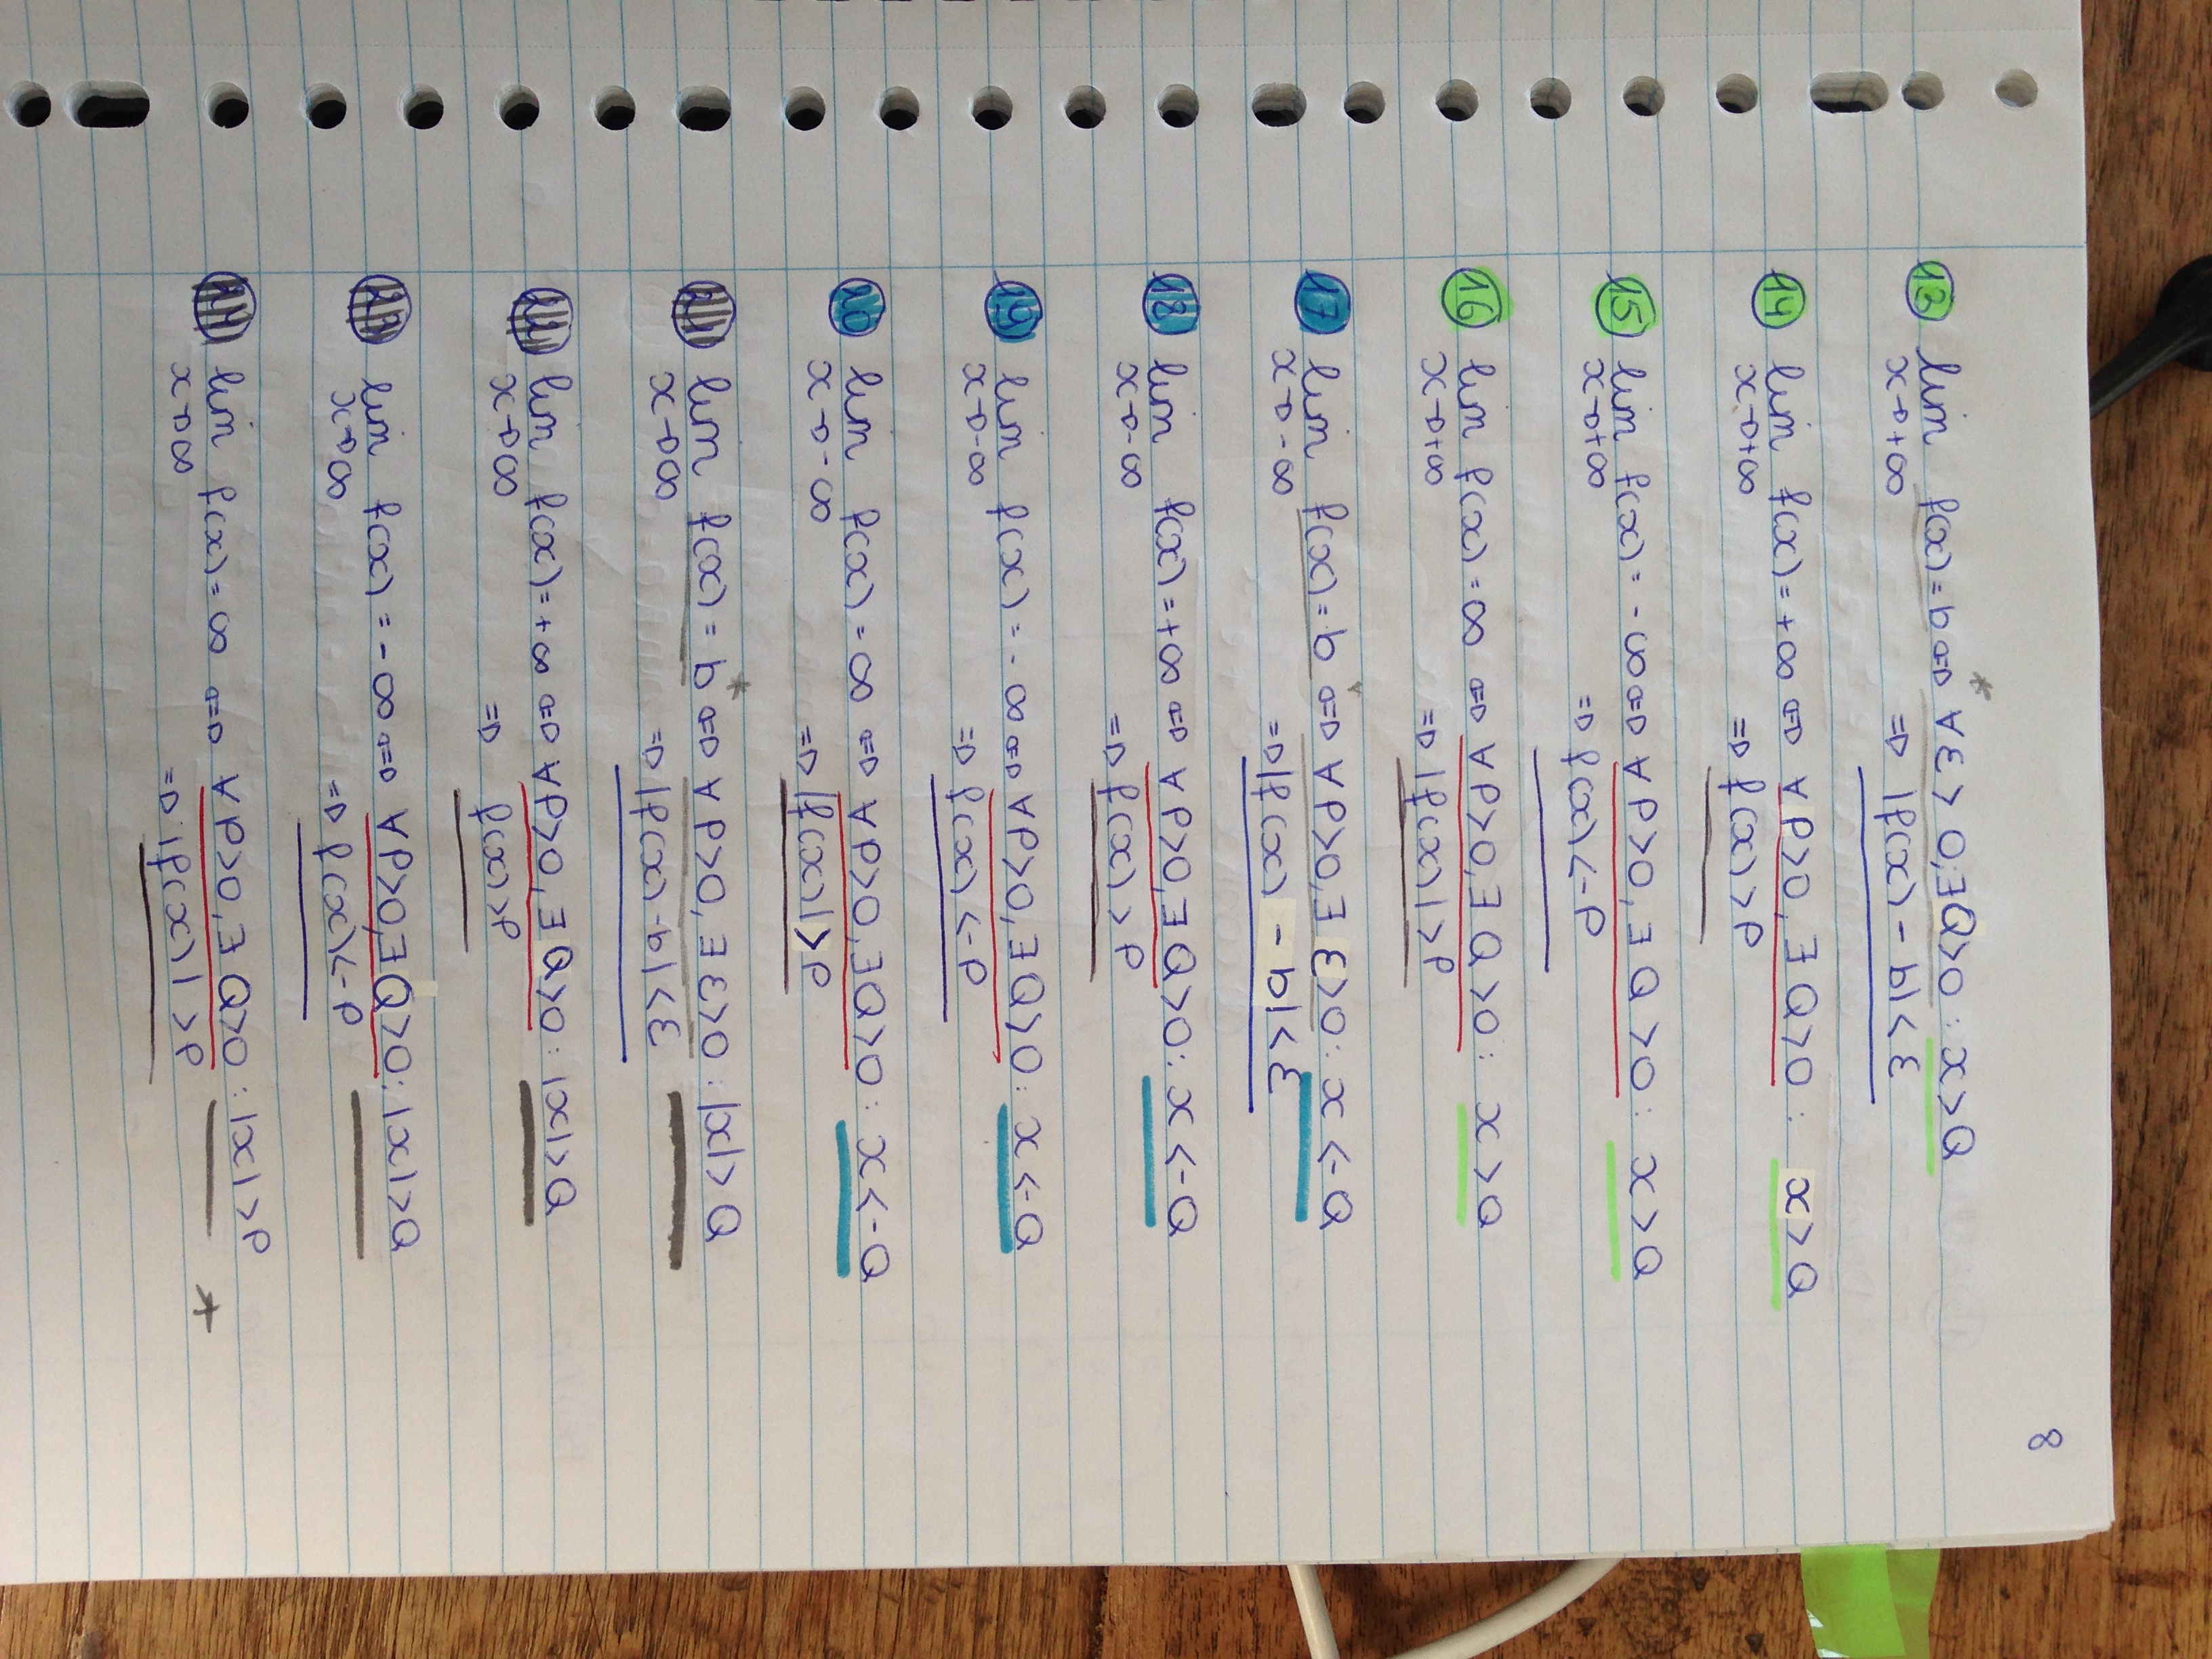 8
*
13 lim f(x) = b ⇔ ∀ε > 0, ∃Q>0 : x>Q
x→+∞ ⇒ |f(x) - b| < ε
14 lim f(x) = +∞ ⇔ ∀ P>0, ∃ Q>0 : x>Q
x→+∞ ⇒ f(x) > P
15 lim f(x) = -∞ ⇔ ∀ P>0, ∃ Q>0 : x>Q
x→+∞ ⇒ f(x) <-P
16 lim f(x) = ∞ ⇔ ∀P>0, ∃ Q>0 : x>Q
x→+∞ ⇒ |f(x)| >P
17 lim f(x) = b ⇔ ∀P>0, ∃ ε>0 : x <-Q
x→-∞ ⇒ |f(x) - b| < ε
18 lim f(x) = +∞ ⇔ ∀P>0, ∃ Q>0 : x <-Q
x→-∞ ⇒ f(x) > P
19 lim f(x) = -∞ ⇔ ∀P>0, ∃Q>0 : x <-Q
x→-∞ ⇒ f(x) <-P
20 lim f(x) = ∞ ⇔ ∀P>0, ∃Q>0 : x<-Q
x→-∞ ⇒ |f(x)| > P
*
21 lim f(x) = b ⇔ ∀ P>0, ∃ ε>0 : |x| > Q
x→∞ ⇒ |f(x) - b| < ε
22 lim f(x) = +∞ ⇔ ∀P>0, ∃ Q>0 : |x| > Q
x→∞ ⇒ f(x) >P
23 lim f(x) = -∞ ⇔ ∀P>0, ∃Q>0 : |x| >Q
x→∞ ⇒ f(x) <-P
24 lim f(x) = ∞ ⇔ ∀P>0, ∃ Q>0 : |x| >P *
x→∞ ⇒ |f(x)| >P